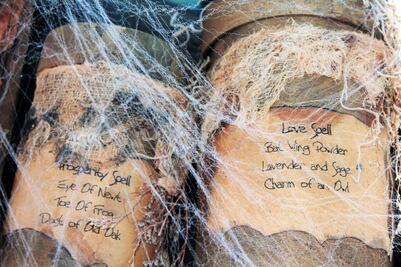 Prosperity Spell
Eye Of Newt
Toe Of Frog
Dust of Old Oak
Love Spell
Bat Wing Powder
Lavender and Sage
Charm of an Owl